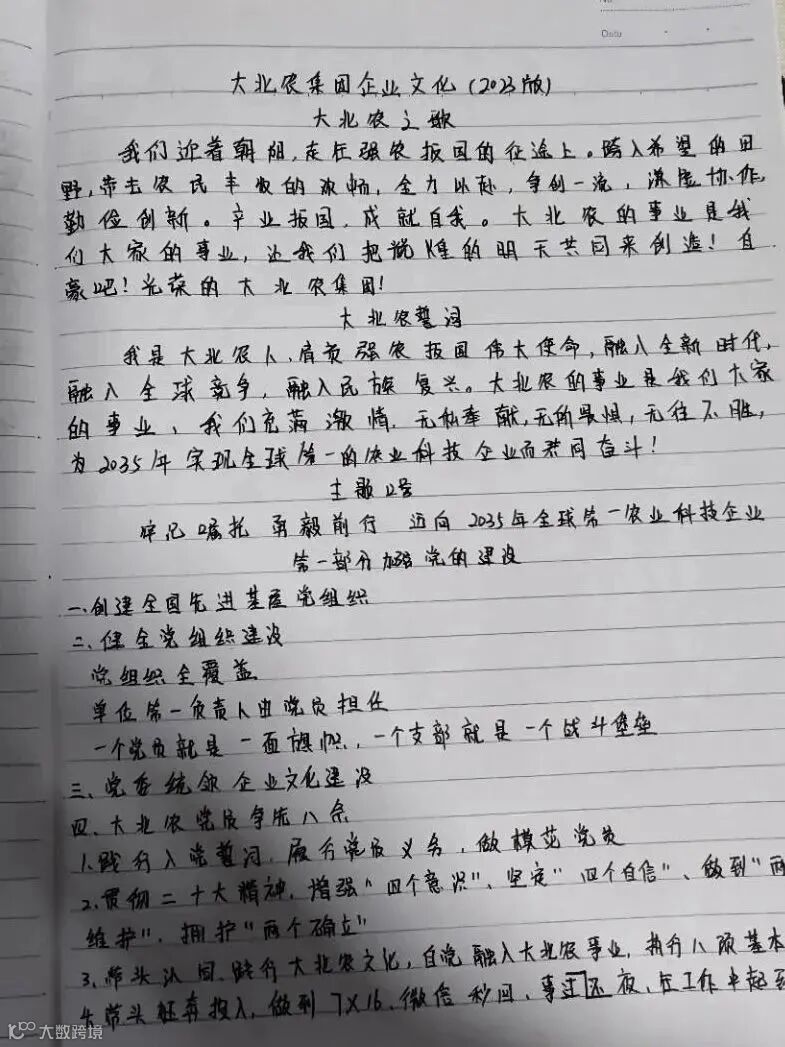 No
Date
大北农集团企业文化(2023版)
大北农之歌
我们迎着朝阳,走在强农报国的征途上。跨入希望的田
野,带去农民丰收的欢畅,全力以赴,争创一流,谦虚协作,
勤俭创新。辛业报国,成就自我。大北农的事业是我
们大家的事业,让我们把辉煌的明天共同来创造!自
豪吧!光荣的大北农集团!
大北农誓词
我是大北农人、肩负强农报国伟大使命,融入全新时代,
融入全球竞争,融入民族复兴。大北农的事业是我们大家
的事业、我们充满激情、无私奉献,无所畏惧,无往不胜,
为2035年实现全球第一的农业科技企业而共同奋斗!
主题
牢记嘱托 勇毅前行 迈向2035年全球第一农业科技企业
第一部分加强党的建设
一、创建全国先进基层党组织
二、健全党组织建设
党组织全覆盖
单位第一负责人由党员担任
一个党员就是一面旗帜,一个支部就是一个战斗堡垒
三、党委统领企业文化建设
四、大北农党员争先八条
1.践行入党誓词,履行党员义务,做模范党员
2.贯彻二十大精神,增强"四个意识"、坚定"四个自信"、做到"两
维护",拥护"两个确立"
3、带头认同、践行大北农文化,自觉融入大北农事业,执行八项基本
4.带头艇奔投入,做到7X16、微信秒回,事过不夜、在工作中起到
大数跨境